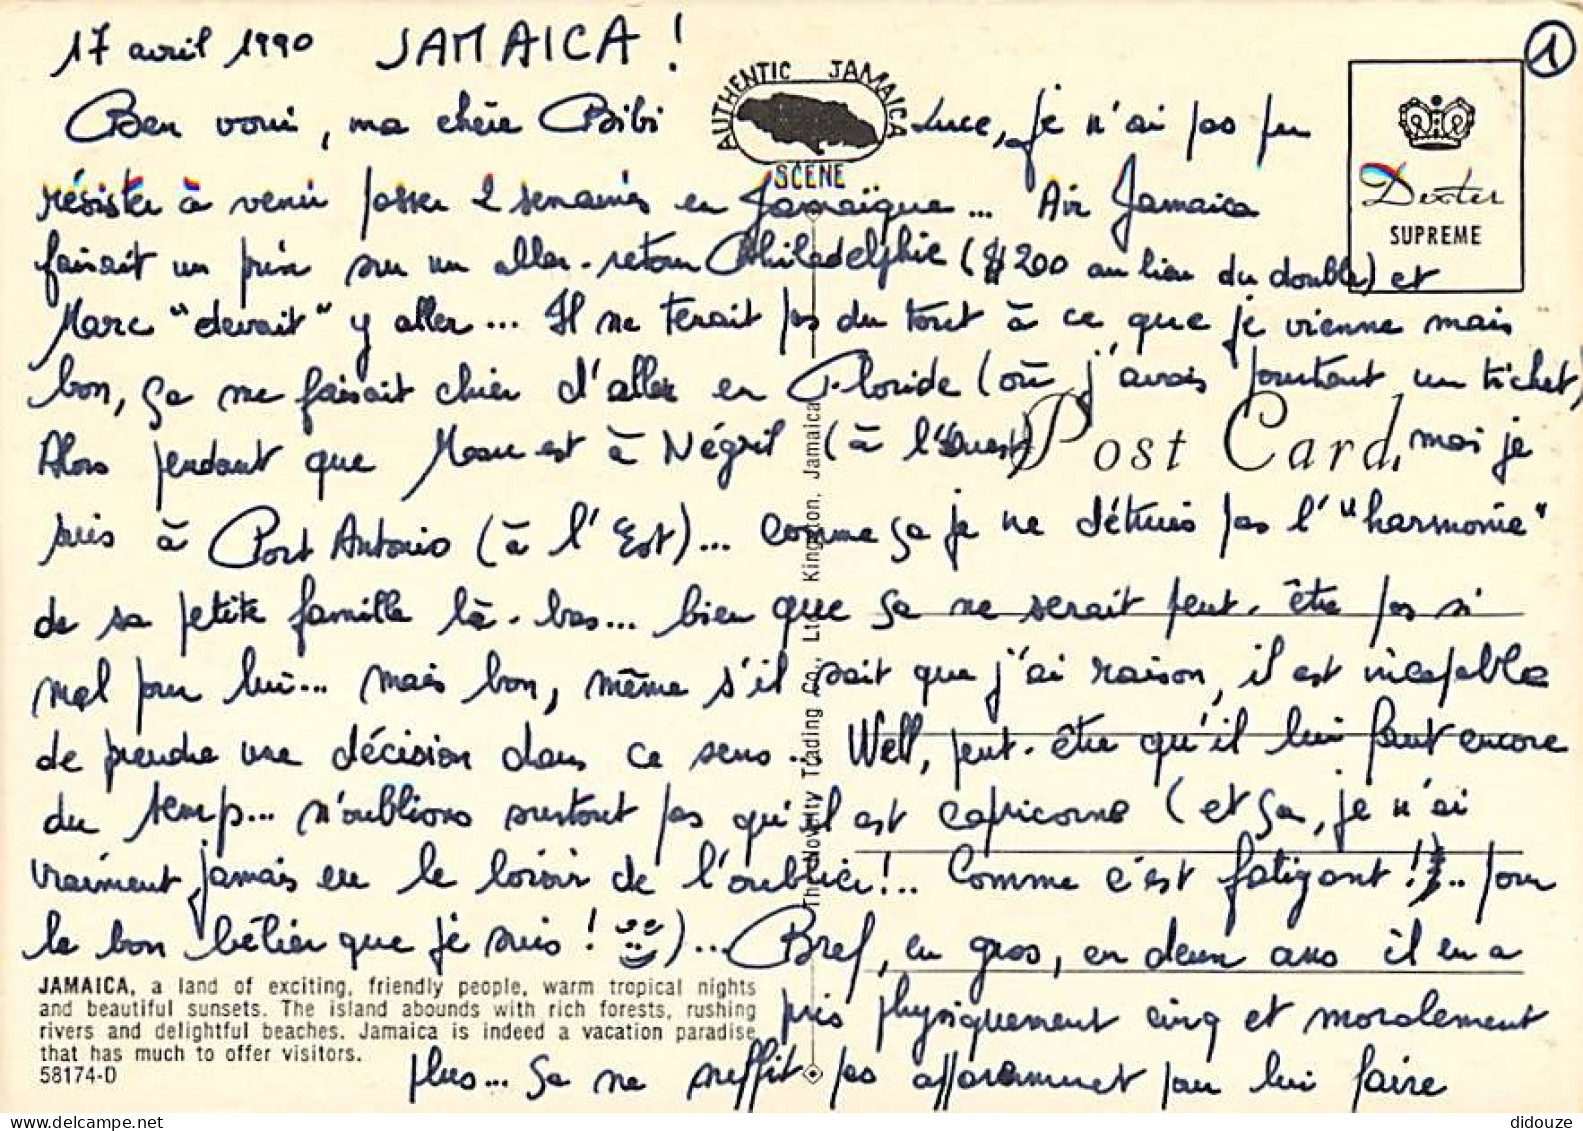 17 avril 1990 JAMAICA !
1
AUTHENTIC JAMAICA
SCENE
Dexter
SUPREME
Ben voui, ma chère Bibi Luce, je n'ai pas pu
résister à venir passer 2 semaines en Jamaïque... Air Jamaica
faisait un prix sur un aller-retour Philadelphie ($200 au lieu du double) et
Marc "devait" y aller... Il ne tenait pas du tout à ce que je vienne mais
bon, ça me faisait chier d'aller en Floride (où j'avais pourtant un ticket)
Post Card
Alors pendant que Marc est à Négril (à l'Ouest), moi je
suis à Port Antonio (à l'Est)... comme ça je ne détruis pas l'"harmonie"
de sa petite famille là-bas... bien que ça ne serait peut-être pas si
mal pour lui... mais bon, même s'il sait que j'ai raison, il est incapable
de prendre une décision dans ce sens.. Well, peut-être qu'il lui faut encore
du temps... n'oublions surtout pas qu'il est capricorne (et ça, je n'ai
vraiment jamais eu le loisir de l'oublier!.. Comme c'est fatigant !.. pour
le bon bélier que je suis !)... Bref, en gros, en deux ans il en a
pris physiquement cinq et moralement
plus... ça ne suffit pas apparemment pour lui faire
JAMAICA, a land of exciting, friendly people, warm tropical nights
and beautiful sunsets. The island abounds with rich forests, rushing
rivers and delightful beaches. Jamaica is indeed a vacation paradise
that has much to offer visitors.
58174-D
The Novelty Trading Co., Ltd. Kingston, Jamaica
didouze